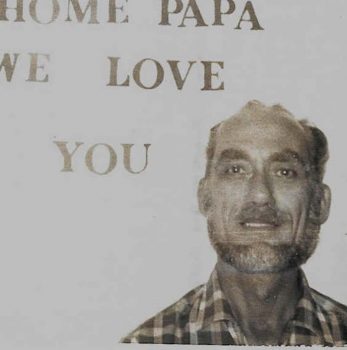 HOME PAPA
WE LOVE
YOU